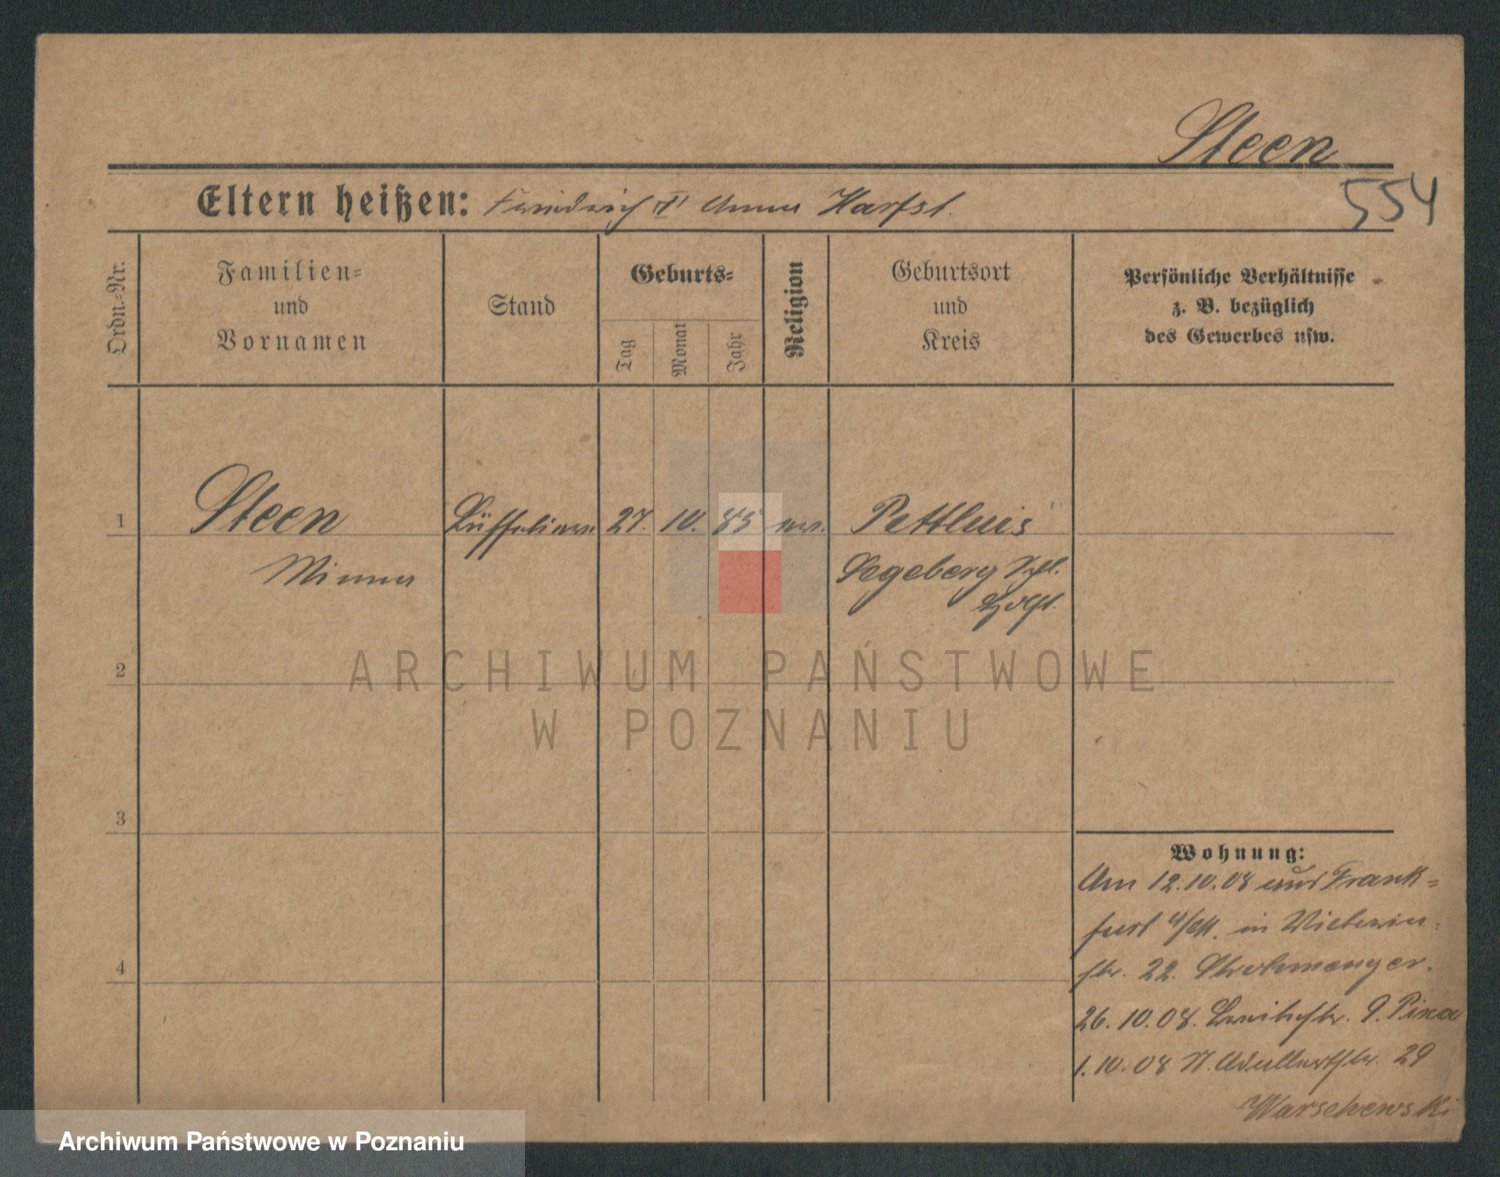 Steen
554
Eltern heißen: Friedrich u Anna Harfst.
Ordn.-Nr.
Familien-
und
Vornamen
Stand
Geburts-
Tag
Monat
Jahr
Religion
Geburtsort
und
Kreis
Persönliche Verhältnisse
z. B. bezüglich
des Gewerbes usw.
1
Steen
Minna
Büffetiere
27.
10.
85
ev.
Pettluis
Segeberg Schl.
Holst.
2
3
4
Wohnung:
Am 12.10.08 aus Frank-
furt a/M. in
str. 22.
26.10.08. Breitestr. 9.
1.10.08 29
Warschewski
ARCHIWUM PAŃSTWOWE
W POZNANIU
Archiwum Państwowe w Poznaniu